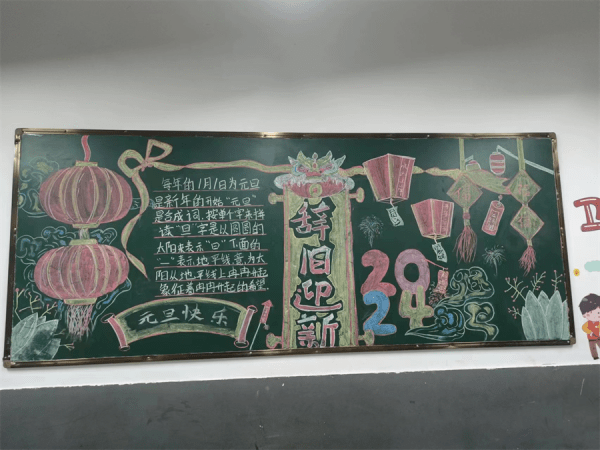 每年的1月1日为元旦
是新年的开始"元旦"
是合成词,按单个字来讲
"旦"字是以圆圆的
太阳来表示"日"下面的
"一"表示地平线意为太
阳从地平线上冉冉升起
象征着冉冉升起的希望
元旦快乐
辞旧迎新
2024
卫